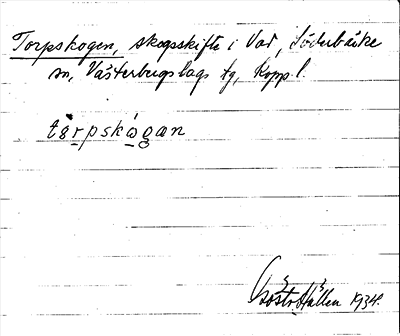 Torpskogen, skogsskifte i Vad, Söderbärke
sn, Västerbergslags tg, Kopp l.
tårpskogan
Gösta Hallen 1934.